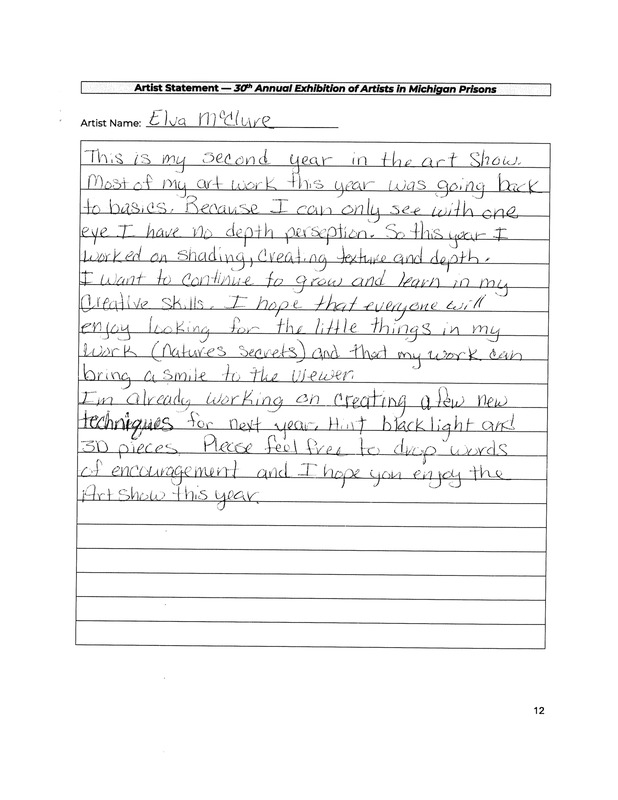 Artist Statement — 30th Annual Exhibition of Artists in Michigan Prisons
Artist Name: Elva McClure
This is my second year in the art show.
Most of my art work this year was going back
to basics. Because I can only see with one
eye I have no depth perseption. So this year I
worked on shading, creating texture and depth.
I want to continue to grow and learn in my
creative skills. I hope that everyone will
enjoy looking for the little things in my
work (natures secrets) and that my work can
bring a smile to the viewer.
I'm already working on creating a few new
techniques for next year. Hint black light and
3D pieces. Please feel free to drop words
of encouragement and I hope you enjoy the
Art show this year.
12